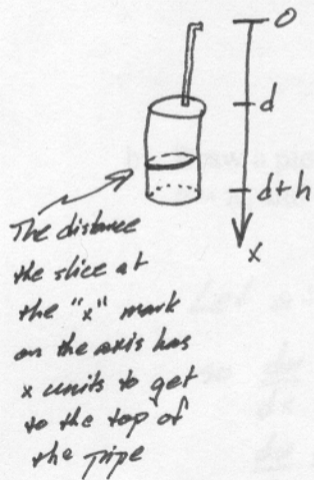 0
d
d+h
x
The distance
the slice at
the "x" mark
on the axis has
x units to get
to the top of
the pipe